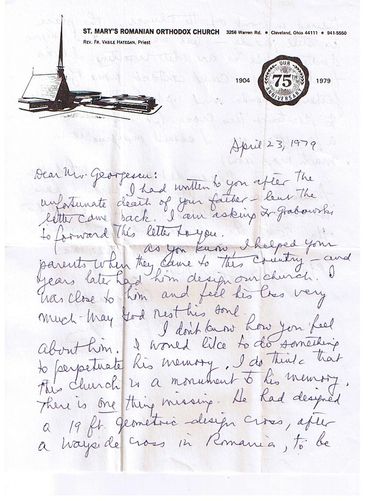 ST. MARY'S ROMANIAN ORTHODOX CHURCH 3256 Warren Rd. • Cleveland, Ohio 44111 • 941-5550
REV. FR. VASILE HATEGAN, Priest
1904 OUR 75th ANNIVERSARY 1979
April 23, 1979
Dear Mr. Georgescu:
I had written to you after the
unfortunate death of your father - but the
letter came back. I am asking Dr Grabowski
to forward this letter to you.
As you know I helped your
parents when they came to this country - and
years later had him design our church. I
was close to him and feel his loss very
much - May God rest his soul.
I don't know how you feel
about him. I would like to do something
to perpetuate his memory. I do think that
this church is a monument to his memory.
There is one thing missing. He had designed
a 19 ft. geometric-design cross, after
a wayside cross in Romania, to be